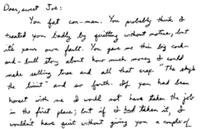 Dear, sweet Joe:
You fat con-man. You probably think I
treated you badly by quitting without notice, but
it's your own fault. You gave me this big cock-
and-bull story about how much money I could
make selling love and all that crap. "The sky's
the limit" and so forth. If you had been
honest with me I would not have taken the job
in the first place; but if I had taken it, I
wouldn't have quit without giving you a couple of